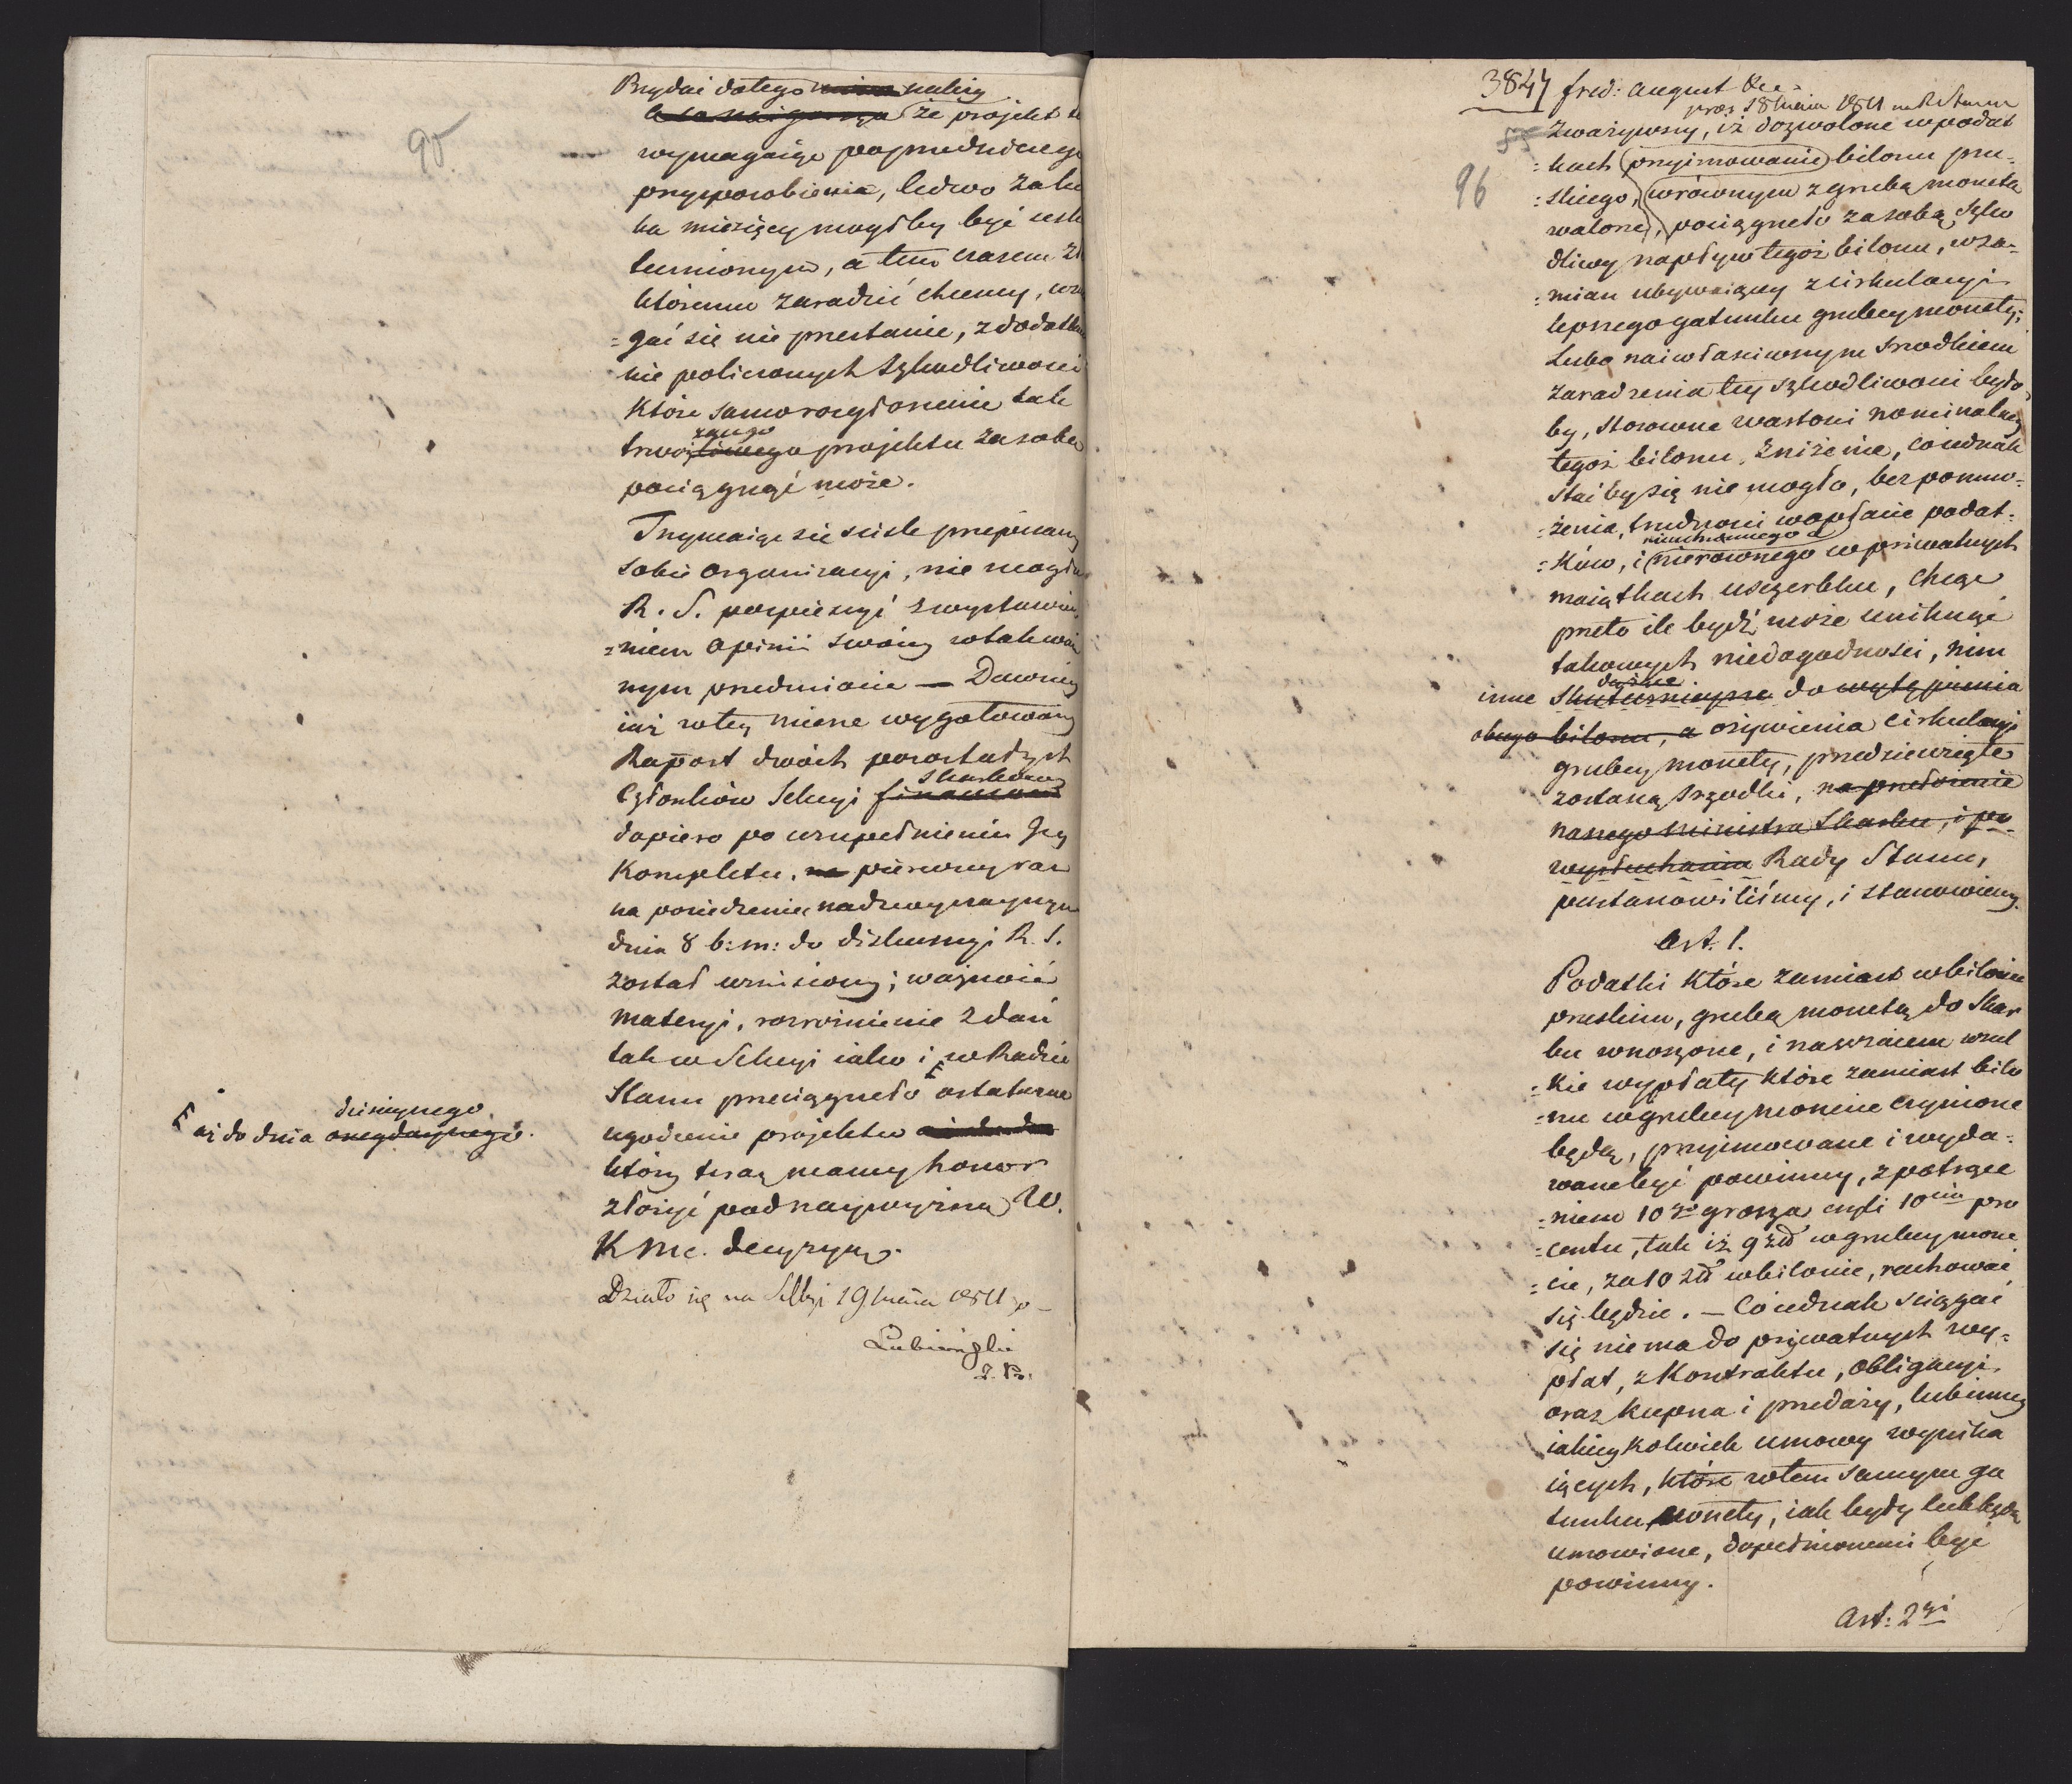 95
Przydać do tego należy
że projekt te
wymagaiąc poprzedniczego
przysposobienia, ledwo za kil
ka miesięcy mogłby być usku
tecznionym, a tem czasem złe
któremu zaradzić chcemy, wzma
=gać się nie przestanie, z dodatkiem
nie policzonych szkodliwości
które samo rozgłoszenie tak
trwożącego projektu za sobą
pociągnąć może.
Trzymaiąc się ściśle przepisaney
sobie organizacyi, nie mogła
R. S. pospieszyć z wystawie
=niem opinii swoiey w tak waż
nym przedmiocie — Dawniey
iuż w tey mierze wygotowany
Raport dwóch pozostałych
Skarbowey
Członków Sekcyi finansowey
dopiero po uzupełnieniu Jey
Kompletu, na pierwszy raz
na posiedzeniu nadzwyczaynym
dnia 8 b: m: do diskussyi R. S.
został wniesiony; ważność
materyi, rozróżnienie zdań
tak w Sekcyi iako i w Radzie
Stanu przeciągnęło ostateczne
ugodzenie projektu
który teraz mamy honor
złożyć pod naywyższą W.
K Mc. decyzyą.
Działo się na Sessyi 19 Kwietnia 1811 r
Lubieński
dzisieyszego
aż do dnia onegdayszego.
3844 fred: august &c
18 1811 R Stanu
96
Zważywszy, iż dozwolone w podat
=kach przyimowanie bilonu pru=
=skiego, w równym z grubą monetą
walorze, pociągneło za sobą szko
dliwy napływ tegoż bilonu, wza=
=mian ubywaiący z cirkulacyi
lepszego gatunku grubey monety;
Lubo naiwłaściwszym środkiem
zaradzenia tey szkodliwości było
by, stosowne wartości nominalney
tegoż bilonu, zniżenie, co iednak
stać by się nie mogło, bez pomno=
=żenia, trudności w opłacie podat=
=ków, i nierównego w prywatnych
maiątkach uszczerbku, chcąc
przeto ile bydź może uniknąć
takowych niedogodności, nim
dążące
inne skutecznieysze do wytępienia
obcego bilonu, a ożywienia cirkulacyi
grubey monety, przedsiewzięte
zostaną szrodki, na przełożenie
naszego Ministra Skarbu, i po
wysłuchaniu Rady Stanu,
postanowiliśmy, i stanowiemy.
Art. 1.
Podatki które zamiast w bilonie
pruskim, grubą monetą do Skar
bu wnoszone, i nawzaiem wszel
=kie wypłaty które zamiast bilo
=nu w grubey monecie czynione
będą, przyimowane i wyda=
wane być powinny, z potrące
=niem 10 go grosza czyli 10ciu pro
=centu, tak iż 9 zł w grubey mone
=cie, za 10 zł w bilonie, rachować
się będzie. — Co iednak ściągać
się nie ma do prywatnych wy=
płat, z Kontraktu, obligacyi,
oraz kupna i przedaży, lub inney
iakieykolwiek umowy wynika
iących, które w tem samym ga
tunku monety, iak były lub będą
umowione, dopełnionemi być
powinny.
Art: 2gi